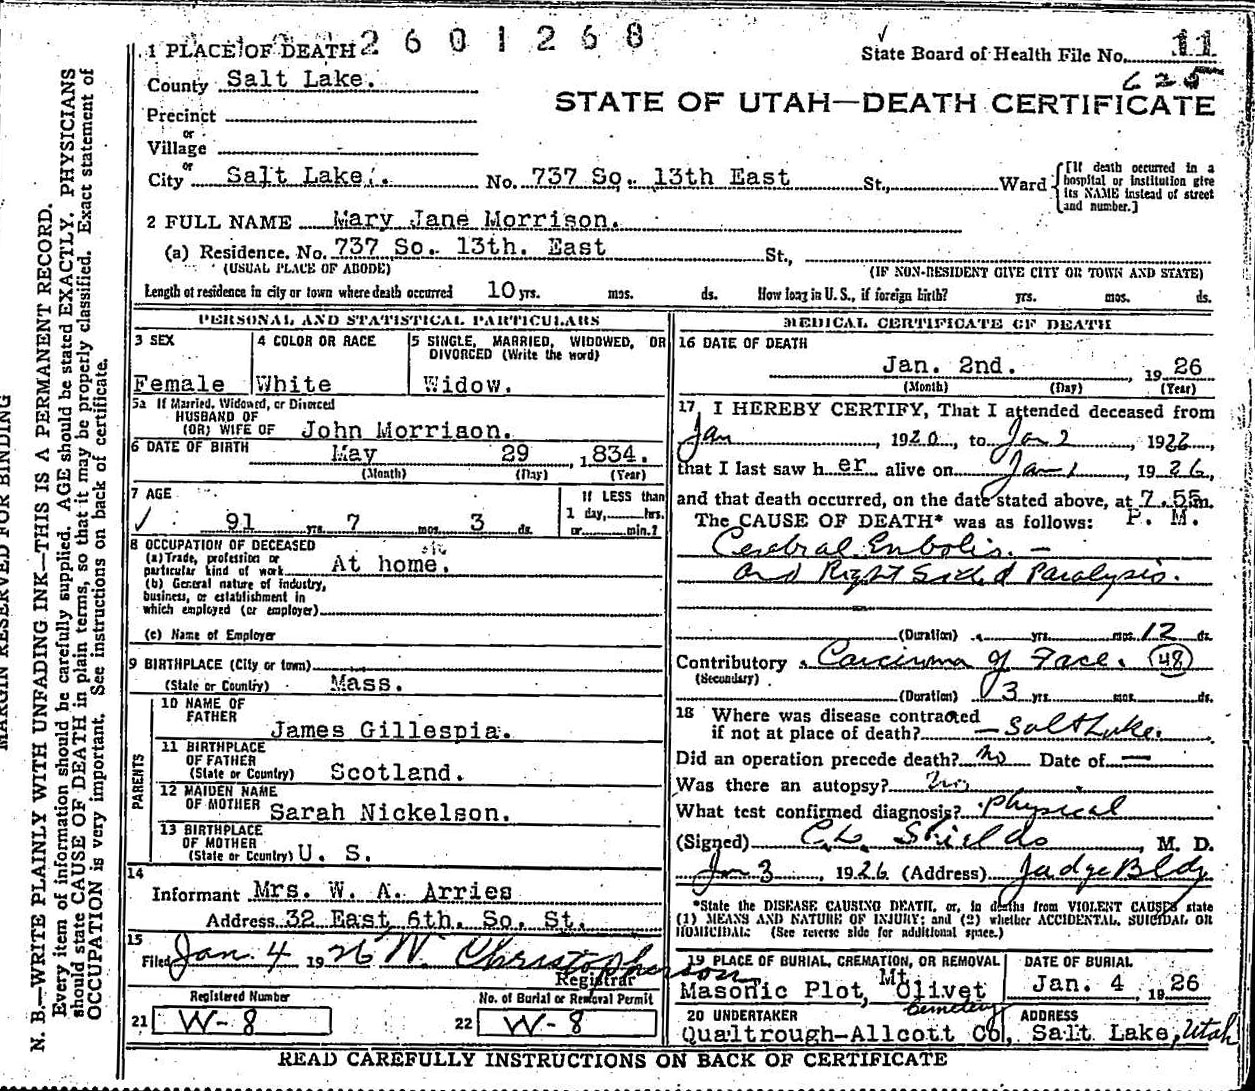 2601268
1 PLACE OF DEATH
State Board of Health File No. 11
625
County Salt Lake.
STATE OF UTAH—DEATH CERTIFICATE
Precinct
or
Village
or
City Salt Lake. No. 737 So. 13th East St., Ward [If death occurred in a hospital or institution give its NAME instead of street and number.]
2 FULL NAME Mary Jane Morrison.
(a) Residence. No. 737 So. 13th. East St.,
(USUAL PLACE OF ABODE) (IF NON-RESIDENT GIVE CITY OR TOWN AND STATE)
Length of residence in city or town where death occurred 10 yrs. mos. ds. How long in U. S., if foreign birth? yrs. mos. ds.
PERSONAL AND STATISTICAL PARTICULARS
3 SEX
Female
4 COLOR OR RACE
White
5 SINGLE, MARRIED, WIDOWED, OR
DIVORCED (Write the word)
Widow.
5a If Married, Widowed, or Divorced
HUSBAND OF
(OR) WIFE OF John Morrison.
6 DATE OF BIRTH May 29 , 1834.
(Month) (Day) (Year)
7 AGE
91 yrs. 7 mos. 3 ds.
If LESS than
1 day, hrs.
or min.?
8 OCCUPATION OF DECEASED
(a) Trade, profession or
particular kind of work At home.
(b) General nature of industry,
business, or establishment in
which employed (or employer)
(c) Name of Employer
9 BIRTHPLACE (City or town)
(State or Country) Mass.
PARENTS
10 NAME OF
FATHER
James Gillespia.
11 BIRTHPLACE
OF FATHER
(State or Country) Scotland.
12 MAIDEN NAME
OF MOTHER Sarah Nickelson.
13 BIRTHPLACE
OF MOTHER
(State or Country) U. S.
14
Informant Mrs. W. A. Arries
Address 32 East 6th. So. St.
15
Filed Jan. 4 1926 W. Christopherson
Registrar
Registered Number
21 W-8
No. of Burial or Removal Permit
22 W-8
MEDICAL CERTIFICATE OF DEATH
16 DATE OF DEATH
Jan. 2nd. , 1926
(Month) (Day) (Year)
17 I HEREBY CERTIFY, That I attended deceased from
Jan , 1920, to Jan 2 , 1926,
that I last saw her alive on Jan 1 , 1926,
and that death occurred, on the date stated above, at 7.55 m.
The CAUSE OF DEATH* was as follows: P. M.
Cerebral Embolis. —
and Right Sided Paralysis.
(Duration) yrs. mos. 12 ds.
Contributory Carcinoma of Face. 48
(Secondary)
(Duration) 3 yrs. mos. ds.
18 Where was disease contracted
if not at place of death? — Salt Lake.
Did an operation precede death? No Date of —
Was there an autopsy? No
What test confirmed diagnosis? Physical
(Signed) C.L. Shields , M. D.
Jan 3 , 1926 (Address) Judge Bldg
*State the DISEASE CAUSING DEATH, or, in deaths from VIOLENT CAUSES state
(1) MEANS AND NATURE OF INJURY; and (2) whether ACCIDENTAL, SUICIDAL OR
HOMICIDAL: (See reverse side for additional space.)
19 PLACE OF BURIAL, CREMATION, OR REMOVAL
Masonic Plot, Mt Olivet
Cemetery
DATE OF BURIAL
Jan. 4 , 1926
20 UNDERTAKER
Qualtrough-Allcott Co,
ADDRESS
Salt Lake, Utah
READ CAREFULLY INSTRUCTIONS ON BACK OF CERTIFICATE
MARGIN RESERVED FOR BINDING
N. B.—WRITE PLAINLY WITH UNFADING INK—THIS IS A PERMANENT RECORD.
Every item of information should be carefully supplied. AGE should be stated EXACTLY. PHYSICIANS
should state CAUSE OF DEATH in plain terms, so that it may be properly classified. Exact statement of
OCCUPATION is very important. See instructions on back of certificate.